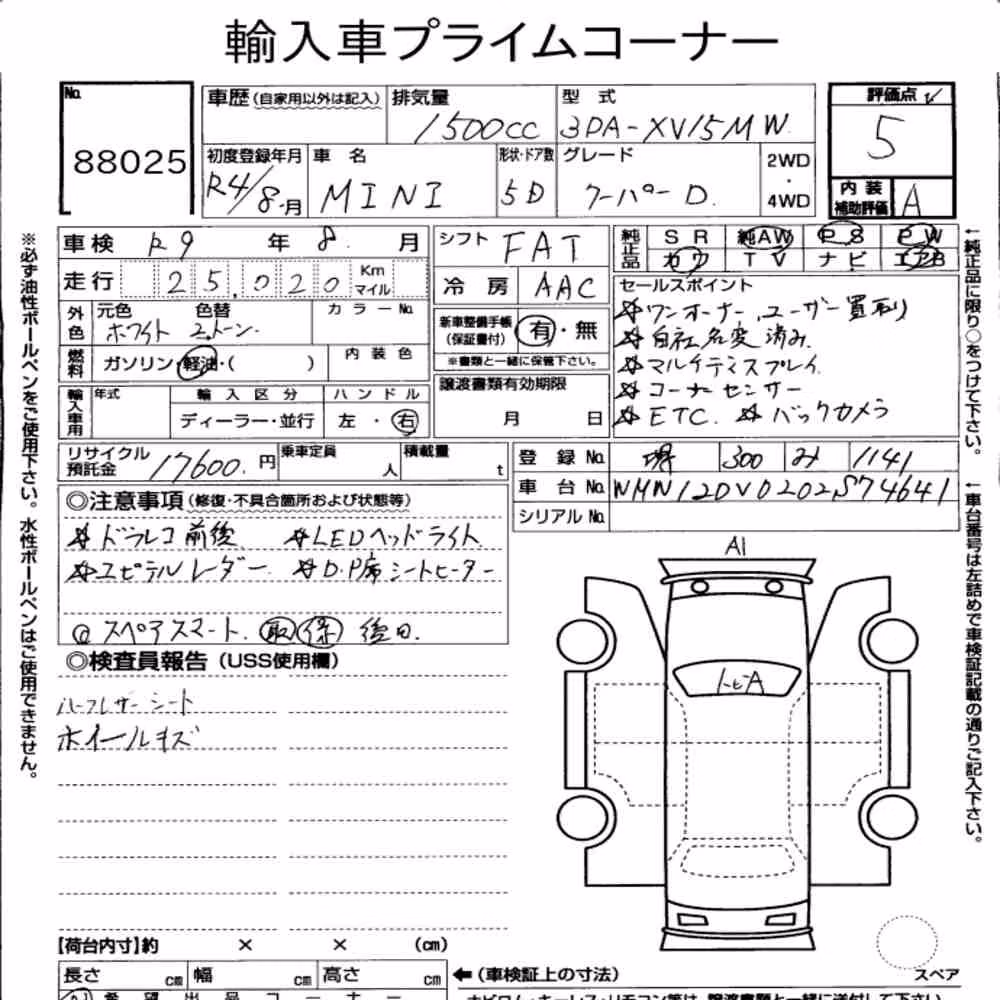 輸入車プライムコーナー
No. 88025
車歴(自家用以外は記入) 排気量 1500cc 型式 3DA-XV15MW
初度登録年月 R4/8月 車名 MINI 形状・ドア数 5D グレード クーパーD. 2WD・4WD
評価点 5
内装補助評価 A
車検 R9年8.月 シフト FAT
純正品 SR 純AW PS PW
カワ TV ナビ エアB
走行 25,020 Km マイル 冷房 AAC
外色 元色 ホワイト 色替 2トーン. カラーNo.
新車整備手帳(保証書付) 有・無
※書類と一緒に保管下さい。
燃料 ガソリン・軽油・( ) 内装色
譲渡書類有効期限 月 日
輸入車用 年式 輸入区分 ディーラー・並行 ハンドル 左・右
セールスポイント
ワンオーナー,ユーザー買取り
自社名変済み.
マルチディスプレイ.
コーナーセンサー
ETC. バックカメラ
リサイクル預託金 17600.円 乗車定員 人 積載量 t
登録No. 堺 300 み 1141
車台No. WMW12DV0202S74641
シリアルNo.
◎注意事項(修復・不具合箇所および状態等)
ドラレコ前後 LEDヘッドライト
ユピテルレーダー D.P席シートヒーター
@ スペアスマート. 取 保 後日.
◎検査員報告(USS使用欄)
ハーフレザーシート
ホイールキズ
A1
トビA
【荷台内寸】約 × × (cm)
長さ cm 幅 cm 高さ cm
←(車検証上の寸法)
スペア
※必ず油性ボールペンをご使用下さい。水性ボールペンはご使用できません。
←純正品に限り○をつけて下さい。
←車台番号は左詰めで車検証記載の通りご記入下さい。